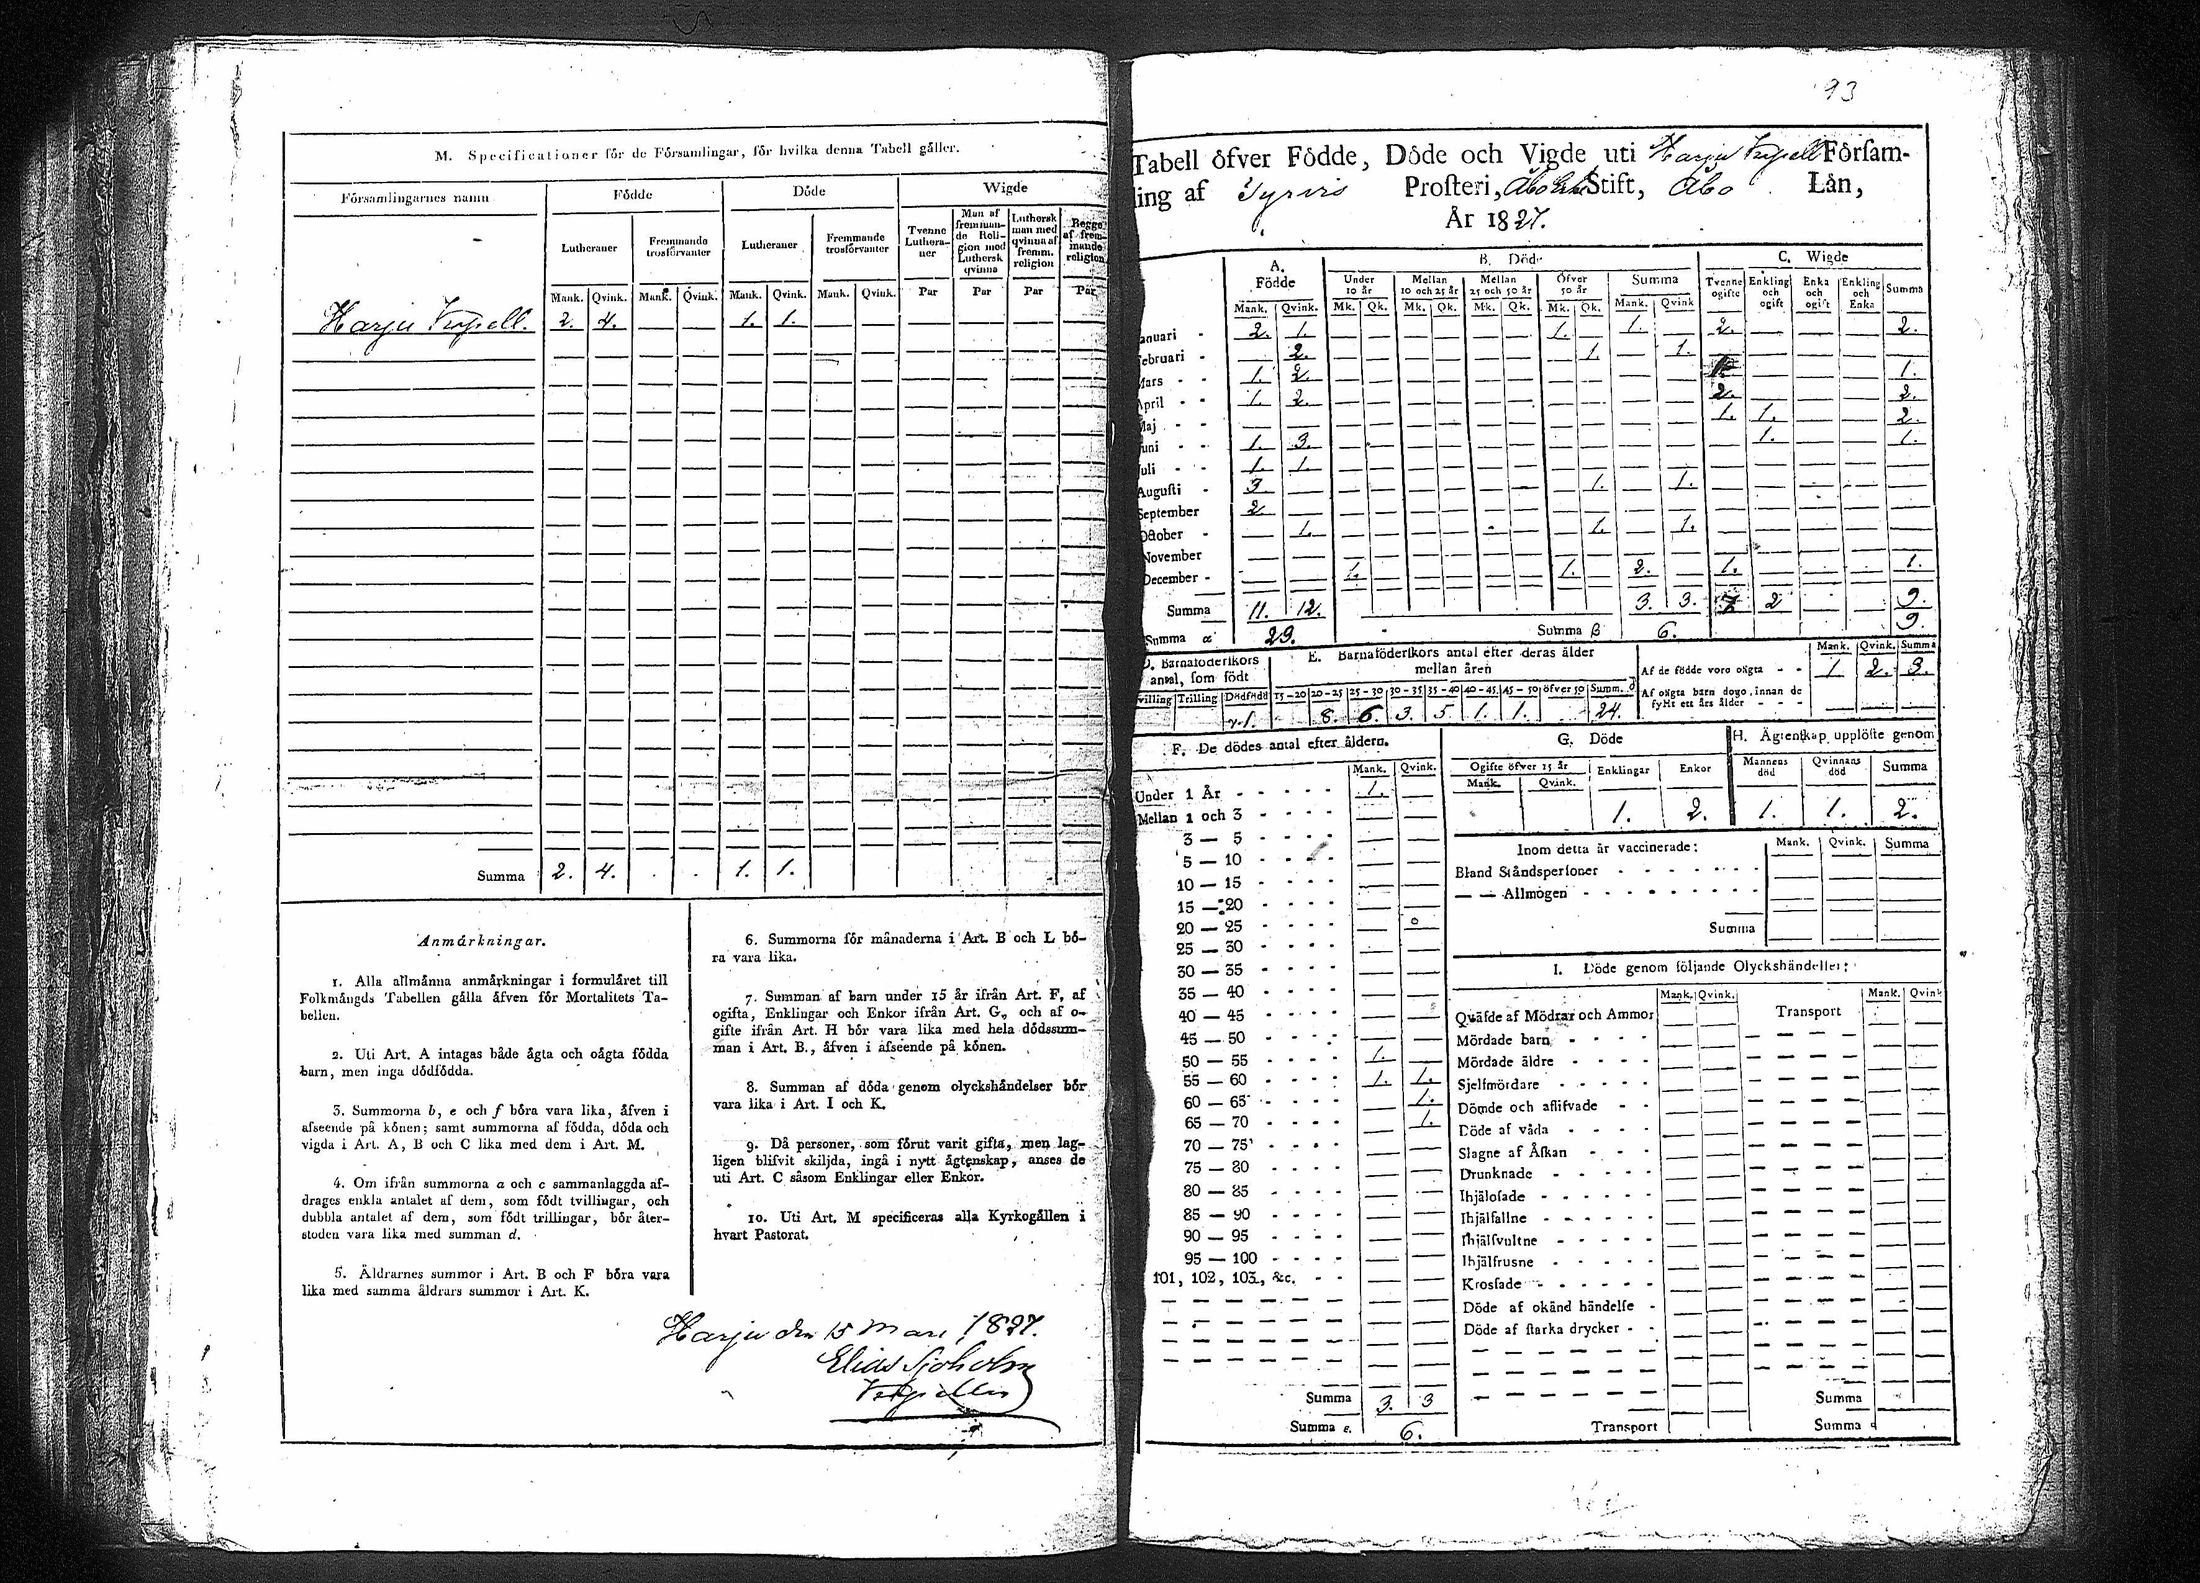 M. Specificationer för de Församlingar, för hvilka denna Tabell gäller.
Församlingarnes namn Födde Döde Wigde
Lutheraner Fremmande trosförvanter Lutheraner Fremmande trosförvanter Tvenne Lutheraner Man af fremmande Religion med Luthersk qvinna Luthersk man med qvinna af fremm. religion Begge af fremmande religion
Mank. Qvink. Mank. Qvink. Mank. Qvink. Mank. Qvink. Par Par Par Par
Harju 2. 4. — — 1. 1. — — — — — —
Summa 2. 4. . . 1. 1.
Anmärkningar.
1. Alla allmänna anmärkningar i formuläret till
Folkmängds Tabellen gälla äfven för Mortalitets Ta-
bellen.
2. Uti Art. A intagas både ägta och oägta födda
barn, men inga dödfödda.
3. Summorna b, e och f böra vara lika, äfven i
afseende på könen; samt summorna af födda, döda och
vigda i Art. A, B och C lika med dem i Art. M.
4. Om ifrån summorna a och c sammanlaggda af-
drages enkla antalet af dem, som födt tvillingar, och
dubbla antalet af dem, som födt trillingar, bör åter-
stoden vara lika med summan d.
5. Äldrarnes summor i Art. B och F böra vara
lika med samma äldrars summor i Art. K.
6. Summorna för månaderna i Art. B och L bö-
ra vara lika.
7. Summan af barn under 15 år ifrån Art. F, af
ogifta, Enklingar och Enkor ifrån Art. G, och af o-
gifte ifrån Art. H bör vara lika med hela dödssum-
man i Art. B., äfven i afseende på könen.
8. Summan af döda genom olyckshändelser bör
vara lika i Art. I och K.
9. Då personer, som förut varit gifta, men lag-
ligen blifvit skiljda, ingå i nytt ägtenskap, anses de
uti Art. C såsom Enklingar eller Enkor.
10. Uti Art. M specificeras alla Kyrkogällen i
hvart Pastorat.
Harju den 15 Mars 1827.
Elias Sjoholm
93
Tabell öfver Födde, Döde och Vigde uti Harju Församl-
ing af Tyrvis Prosteri, Åbo Stift, Åbo Län,
År 1827.
A. Födde B. Döde C. Wigde
Under 10 år Mellan 10 och 25 år Mellan 25 och 50 år Öfver 50 år Summa Tvenne ogifte Enkling och ogift Enka och ogift Enkling och Enka Summa
Mank. Qvink. Mk. Qk. Mk. Qk. Mk. Qk. Mk. Qk. Mank. Qvink
anuari - 2. 1. 1. 1. 2. 2.
ebruari - 2. 1. 1.
Mars - - 1. 2. 1.
April - - 1. 2. 2. 2.
Maj - - 1. 1. 2.
uni - - 1. 3. 1. 1.
uli - - 1. 1.
Augusti - 3 1. 1.
September 2
October - 1. 1. 1.
November
December - 1. 1. 2. 1. 1.
Summa 11. 12. 3. 3. 7 2 9.
Summa α 29. Summa β 6. 9.
D. Barnaföderskors antal, som födt
villing Trilling Dödfödd
1.
E. Barnaföderskors antal efter deras ålder mellan åren
15-20 20-25 25-30 30-35 35-40 40-45 45-50 öfver 50 Summ.
8. 6. 3. 5 1. 1. 24.
Mank. Qvink. Summa
Af de födde voro oägta - - 1 2. 3.
Af oägta barn dogo, innan de
fyllt ett års ålder - - -
F. De dödes antal efter åldern.
Mank. Qvink.
Under 1 År - - - - - 1.
Mellan 1 och 3 - - - -
3 — 5 - - - -
5 — 10 - - - -
10 — 15 - - - -
15 — 20 - - - -
20 — 25 - - - -
25 — 30 - - - -
30 — 35 - - - -
35 — 40 - - - -
40 — 45 - - - -
45 — 50 - - - -
50 — 55 - - - - 1.
55 — 60 - - - - 1. 1.
60 — 65 - - - - 1.
65 — 70 - - - - 1.
70 — 75 - - - -
75 — 80 - - - -
80 — 85 - - - -
85 — 90 - - - -
90 — 95 - - - -
95 — 100 - - - -
101, 102, 103, &c. - -
Summa 3. 3
Summa ε. 6.
G. Döde
Ogifte öfver 15 år Enklingar Enkor
Mank. Qvink.
1. 2.
H. Ägtenskap upplöste genom
Mannens död Qvinnans död Summa
1. 1. 2.
Inom detta år vaccinerade: Mank. Qvink. Summa
Bland Ståndspersoner - - - - - - -
— — Allmogen - - - - - - - -
Summa
I. Döde genom följande Olyckshändelser:
Mank. Qvink. Transport Mank. Qvink
Qväfde af Mödrar och Ammor
Mördade barn - - - -
Mördade äldre - - - -
Sjelfmördare - - - - -
Dömde och aflifvade - -
Döde af våda - - - -
Slagne af Åskan - - -
Drunknade - - - - -
Ihjälosade - - - - -
Ihjälfallne - - - - -
Ihjälsvultne - - - - -
Ihjälfrusne - - - - -
Krossade - - - - -
Döde af okänd händelse -
Döde af starka drycker - -
Summa
Transport Summa